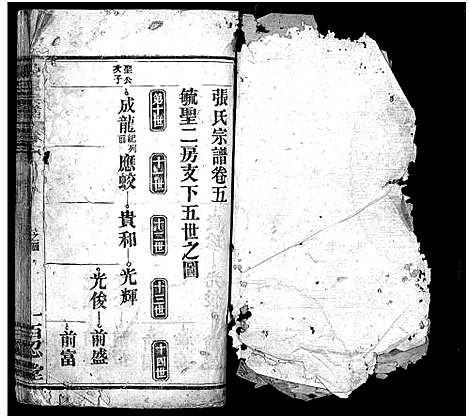 張氏宗譜卷五
毓聖二房支下五世之圖
第十世 十一世 十二世 十三世 十四世
聖公次子 成龍 紀列前 應蛟 貴和 光輝
光俊 前盛
前富
百忍堂